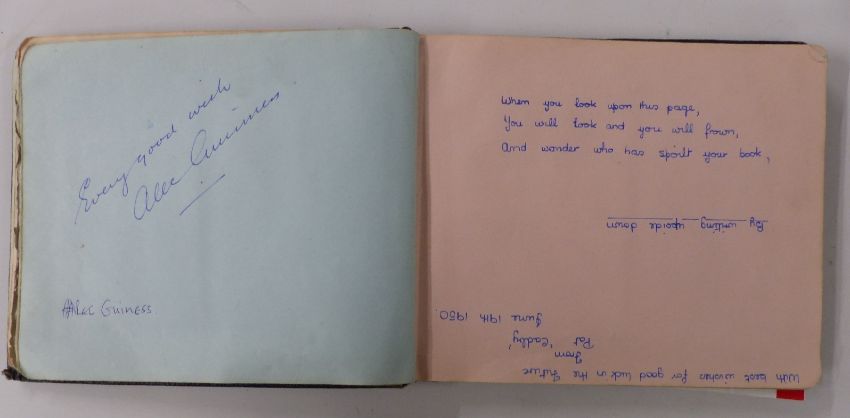 Every good wish
Alec Guinness
AAlec Guiness
When you look upon this page,
You will look and you will frown,
And wonder who has spoilt your book,
By writing upside down
With best wishes for good luck in the future
From
Pat
June 19th 1950.